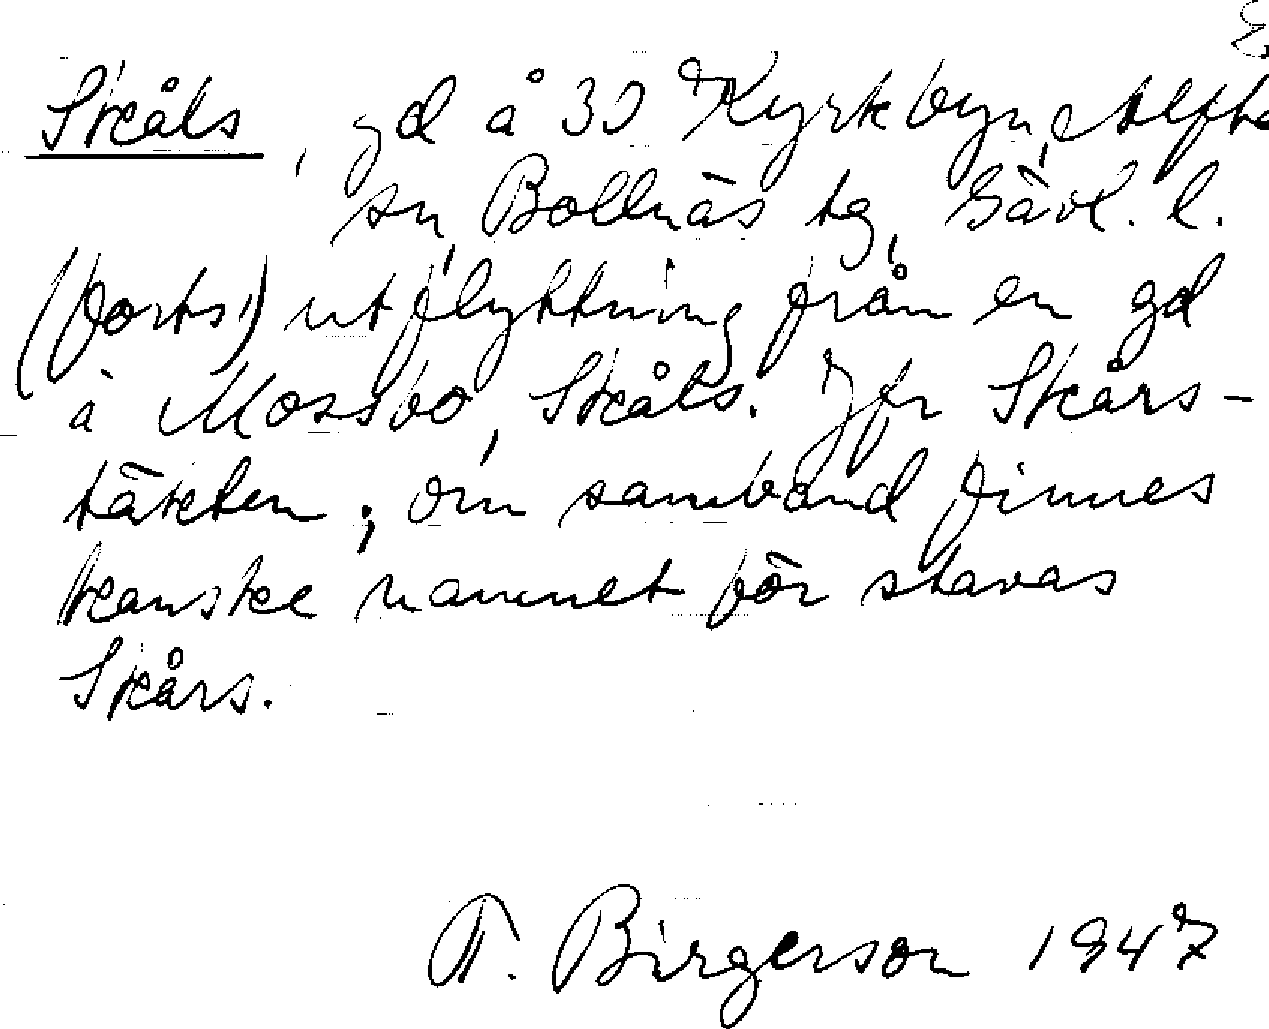 Skåls, gd å 30 Kyrkbyn, Alfta
sn, Bollnäs tg, Gävl. l.
(forts.) utflyttning från en gd
å Mossbo, Skåls. Jfr Skårs-
täkten; om samband finnes
kanske namnet bör stavas
Skårs.
Birgerson 1947